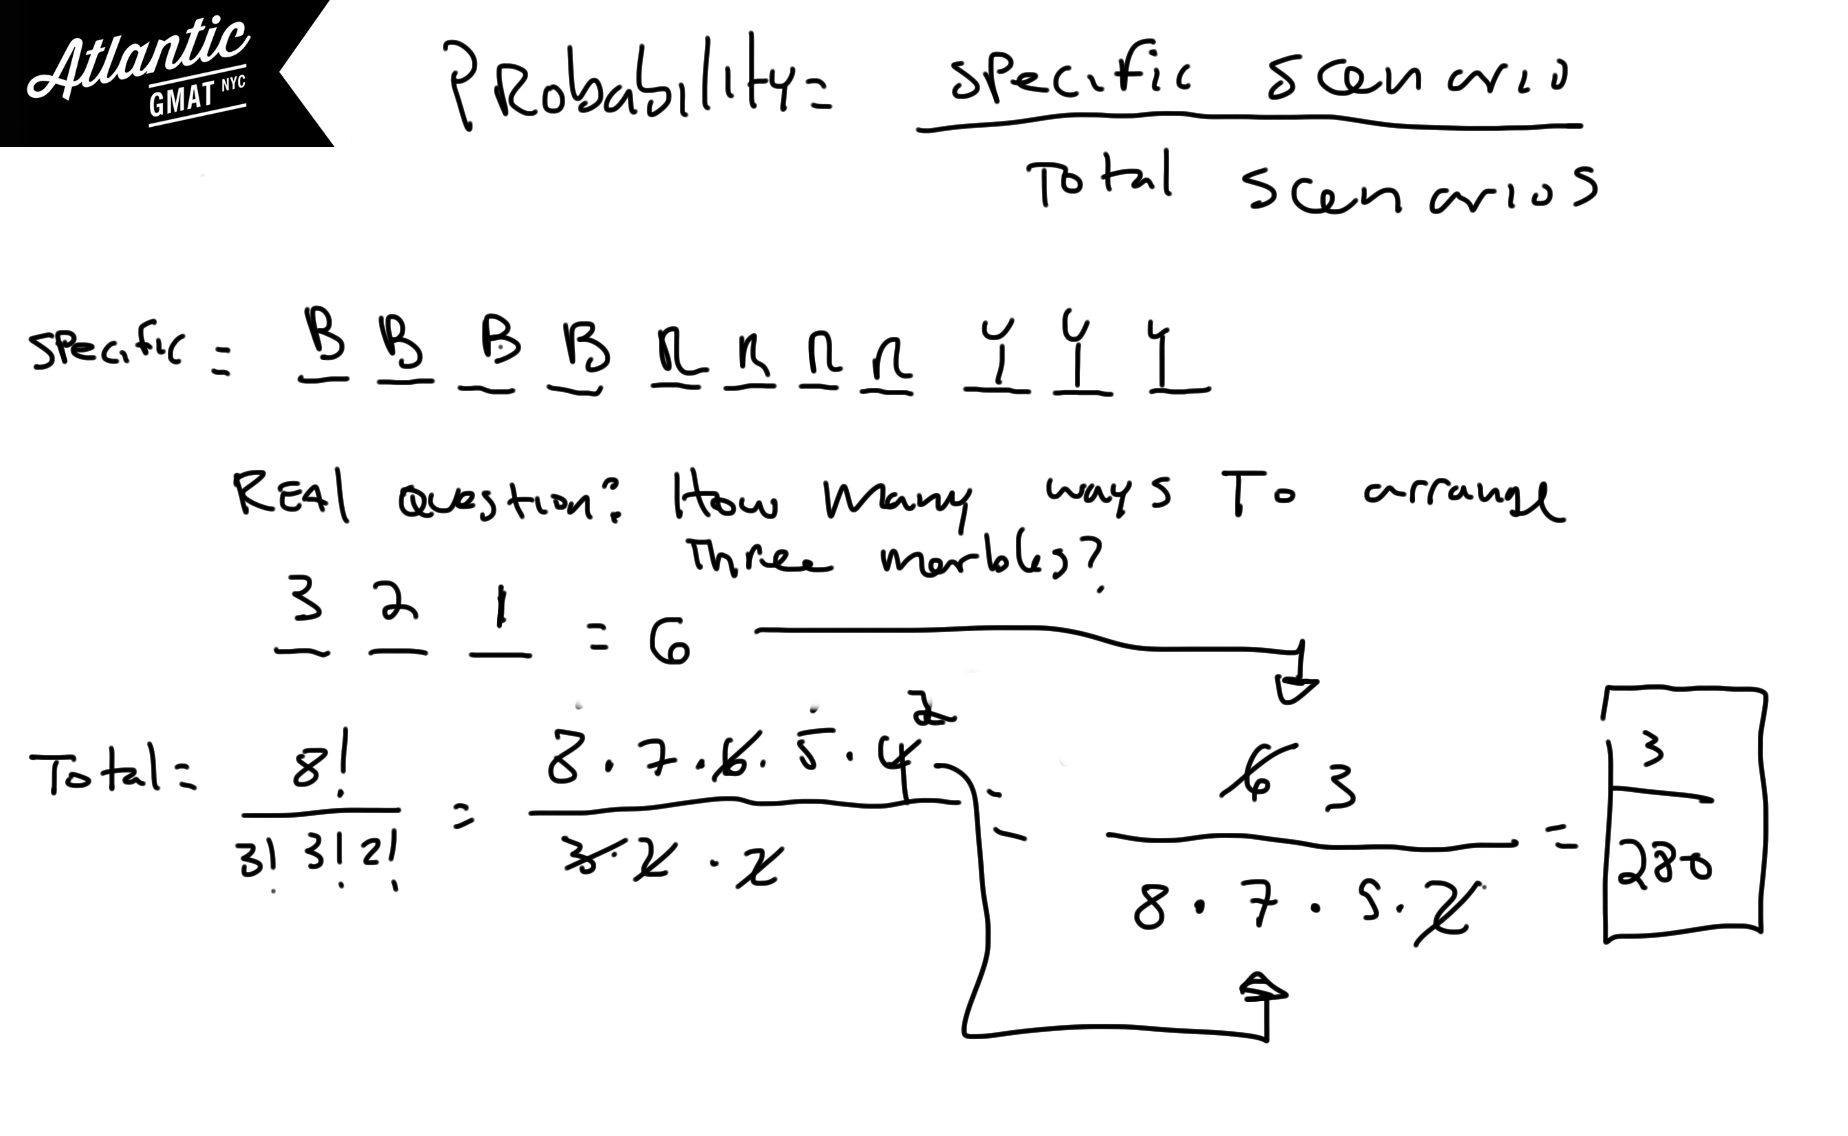 Atlantic
GMAT NYC
Probability = specific scenario
Total scenarios
specific = B B B B R R R R Y Y Y
Real question: How many ways To arrange
Three marbles?
3 2 1 = 6
Total = 8! / 3! 3! 2! = 8 . 7 . 6 . 5 . 4 2 / 3 . 2 . 2 = 6 3 / 8 . 7 . 5 . 2 = 3 / 280